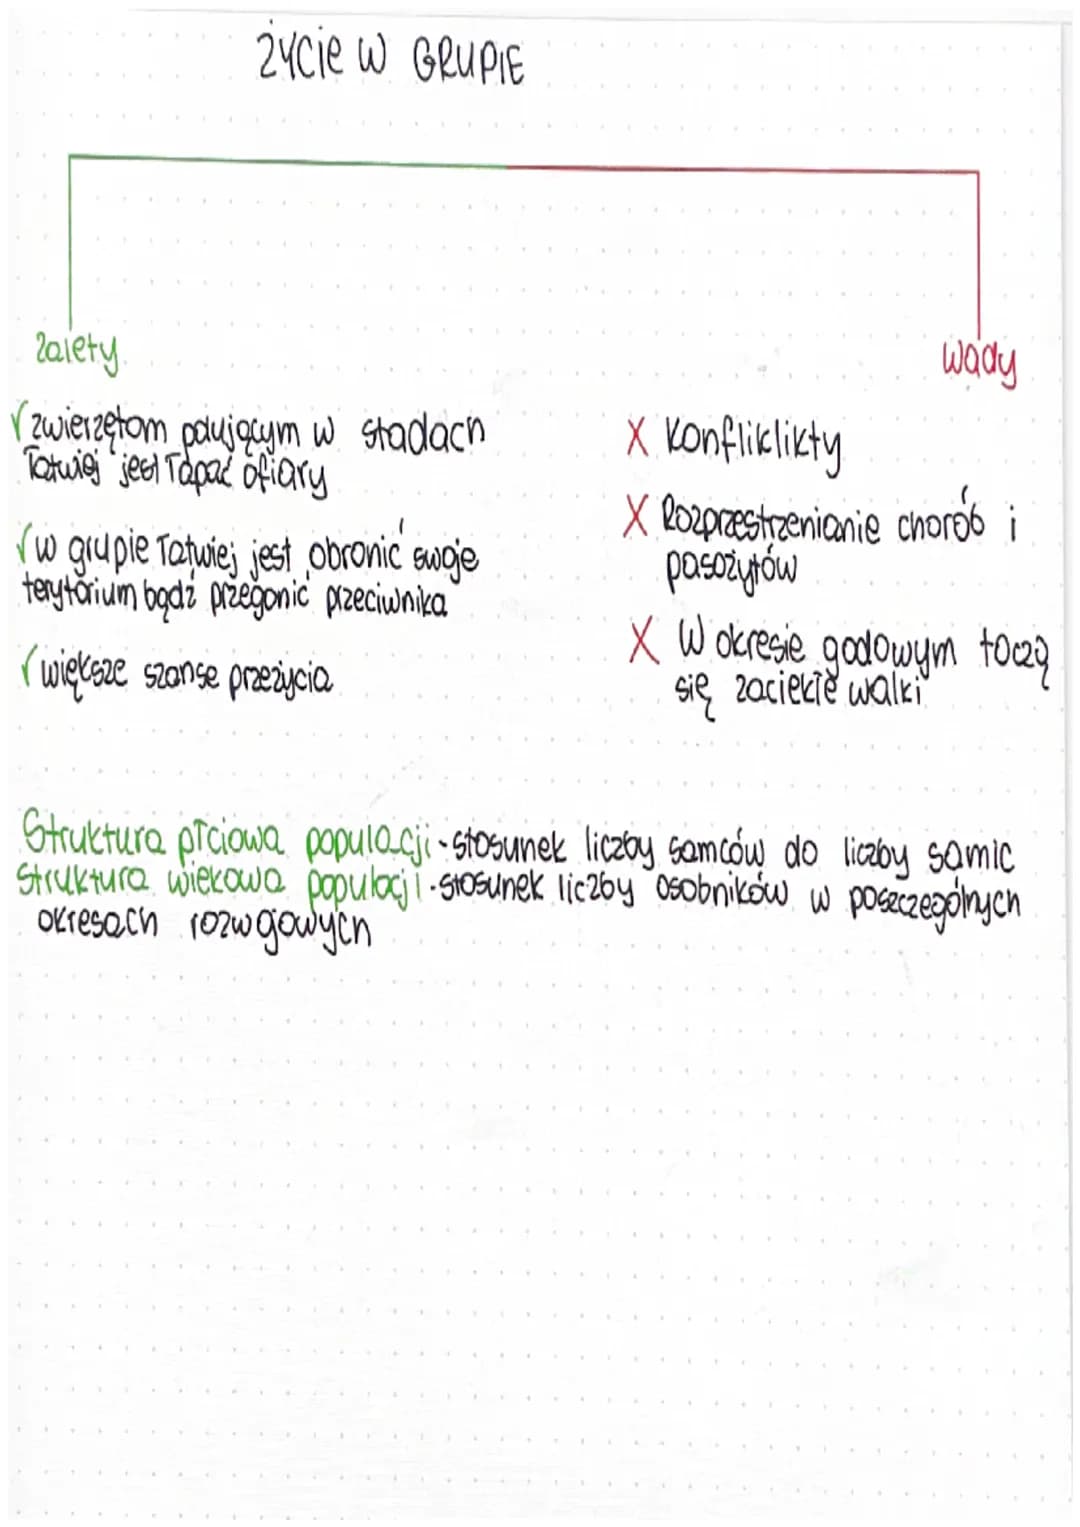 ŻYCIE W GRUPIE
zalety
wady
√ zwierzętom polującym w stadach
łatwiej jest łapać ofiary
√ w grupie łatwiej jest obronić swoje
terytorium bądź przegonić przeciwnika
√ większe szanse przeżycia
X Konfliklikty
X Rozprzestrzenianie chorób i
pasożytów
X W okresie godowym toczą
się zaciekłe walki
Struktura płciowa populacji - stosunek liczby samców do liczby samic
Struktura wiekowa populacji - stosunek liczby osobników w poszczególnych
okresach rozwojowych